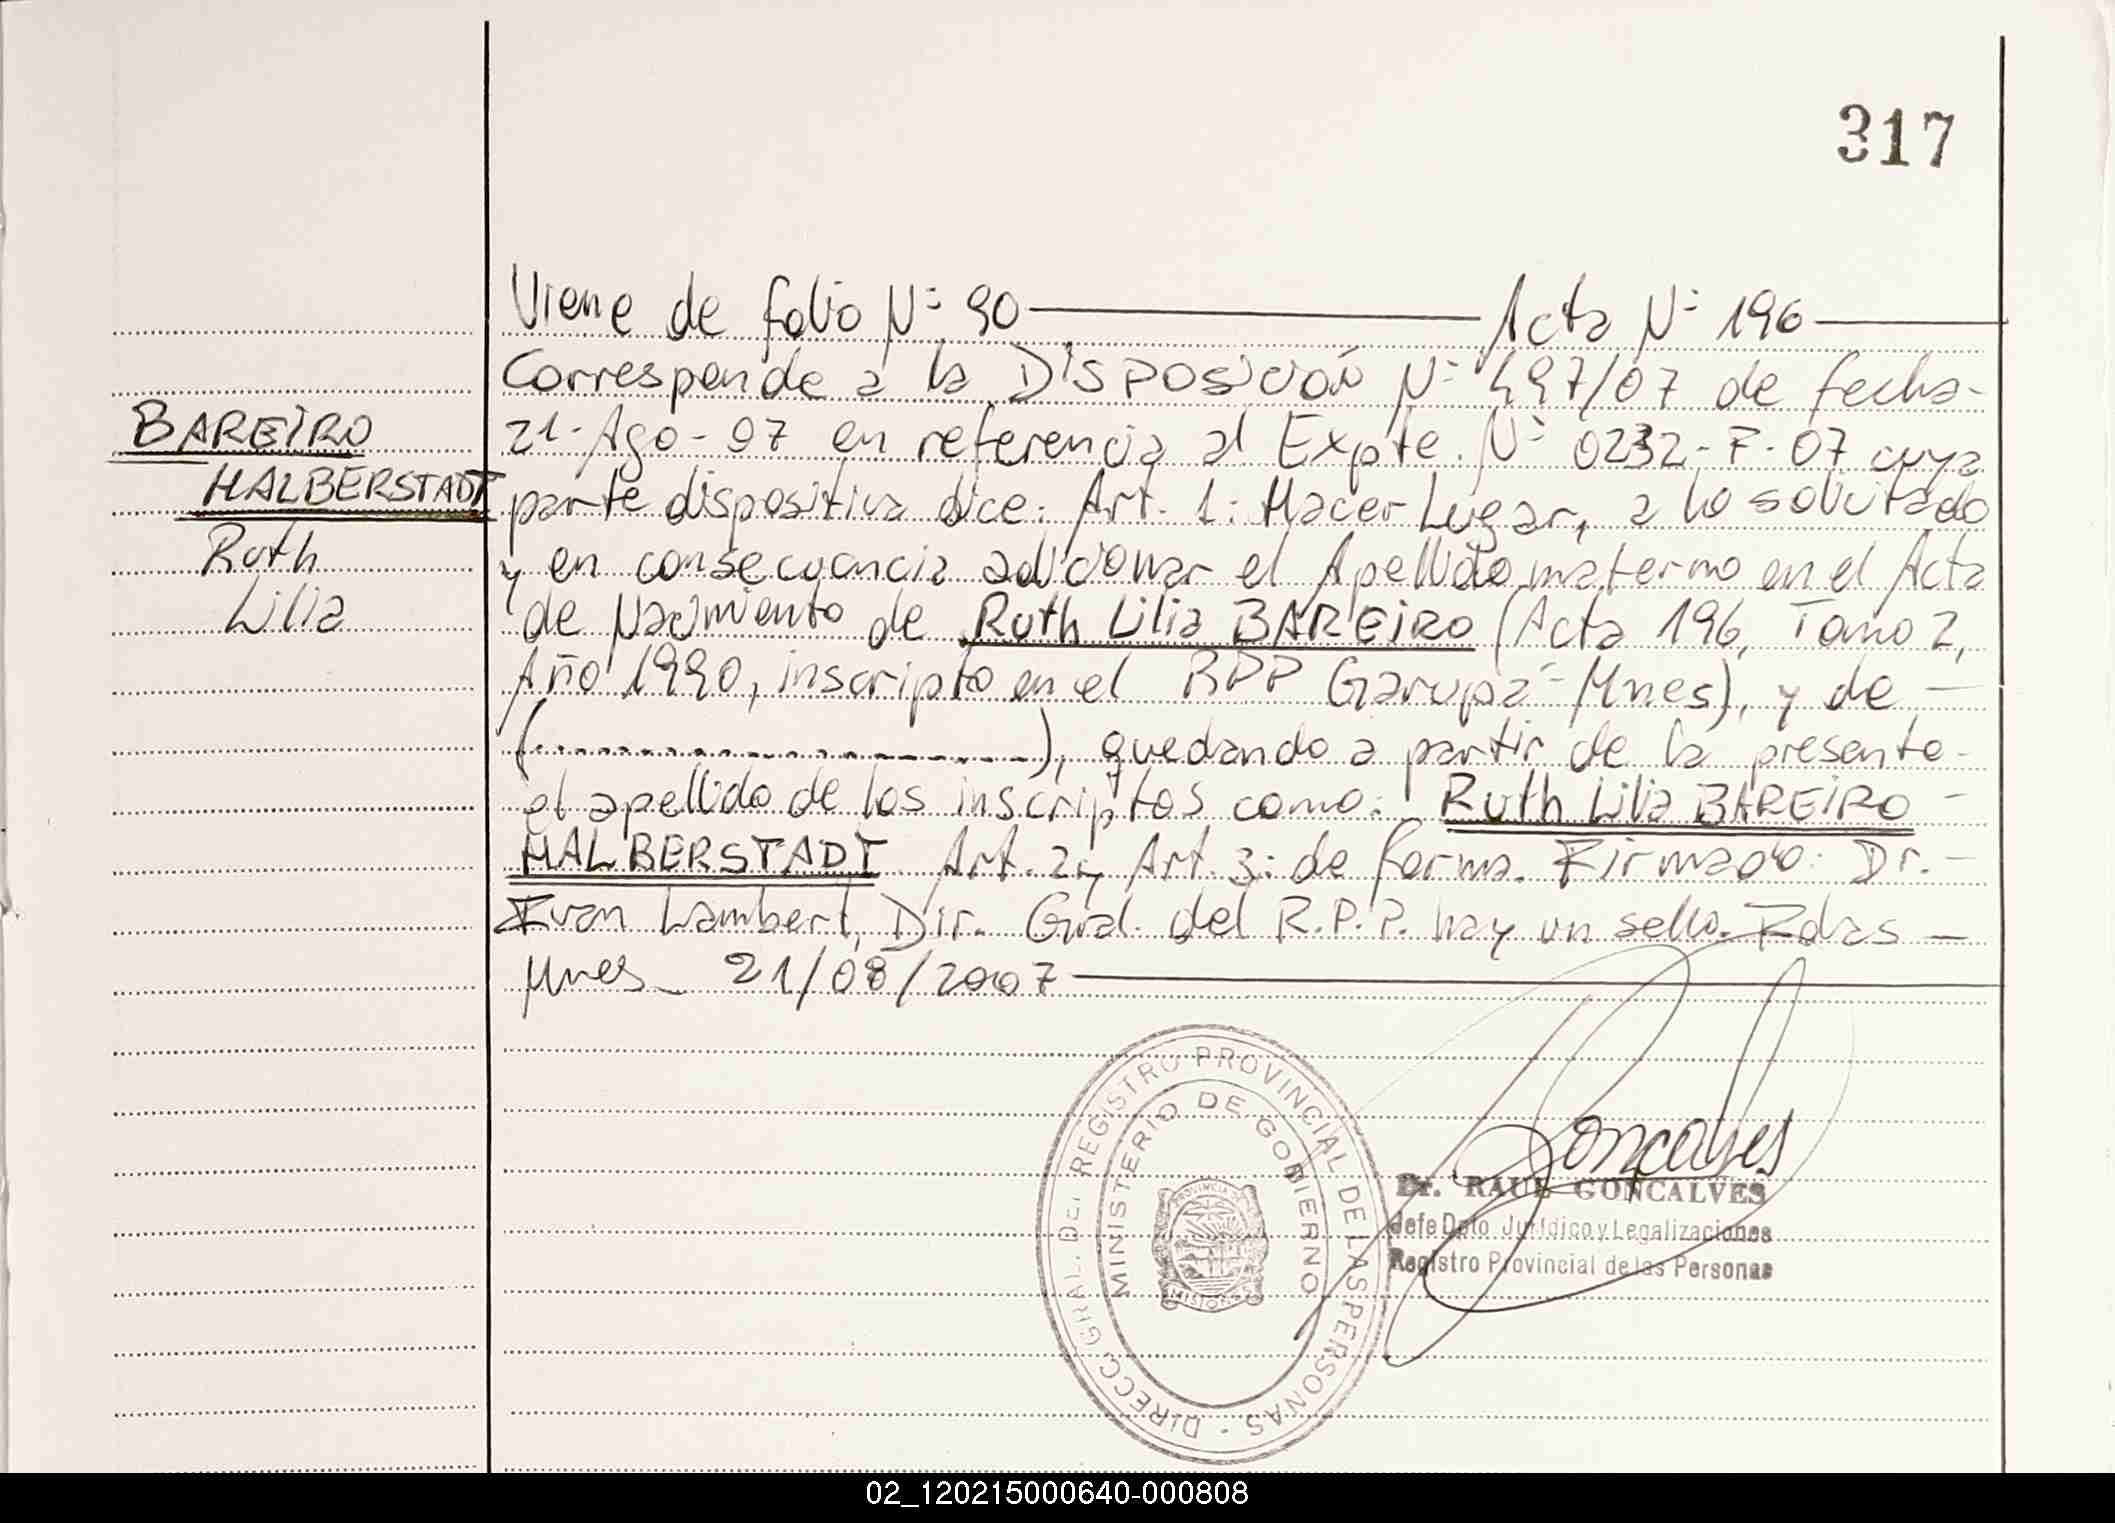 317
Viene de folio Nº 90 Acta Nº 196
Corresponde a la Disposición Nº 497/07 de fecha-
BAREIRO
21-Ago-07 en referencia al Expte. Nº 0232-F-07 cuya
HALBERSTADT
parte dispositiva dice: Art. 1: Hacer Lugar, a lo solicitado
Ruth
y en consecuencia adicionar el Apellido materno en el Acta
Lilia
de Nacimiento de Ruth Lilia BAREIRO (Acta 196, Tomo 2,
Año 1990, inscripto en el RPP Garupá-Mnes), y de -
(....................), quedando a partir de la presente-
el apellido de los inscriptos como: Ruth Lilia BAREIRO -
HALBERSTADT. Art. 2 y Art. 3: de forma. Firmado: Dr. -
Ivan Lambert, Dir. Gral. del R.P.P. hay un sello. Pdas -
Mnes_ 21/08/2007
DIRECC. GRAL. DEL REGISTRO PROVINCIAL DE LAS PERSONAS -
MINISTERIO DE GOBIERNO
PROVINCIA DE
MISIONES
Goncalves
Dr. RAUL GONCALVES
Jefe Dpto. Jurídico y Legalizaciones
Registro Provincial de las Personas
02_120215000640-000808